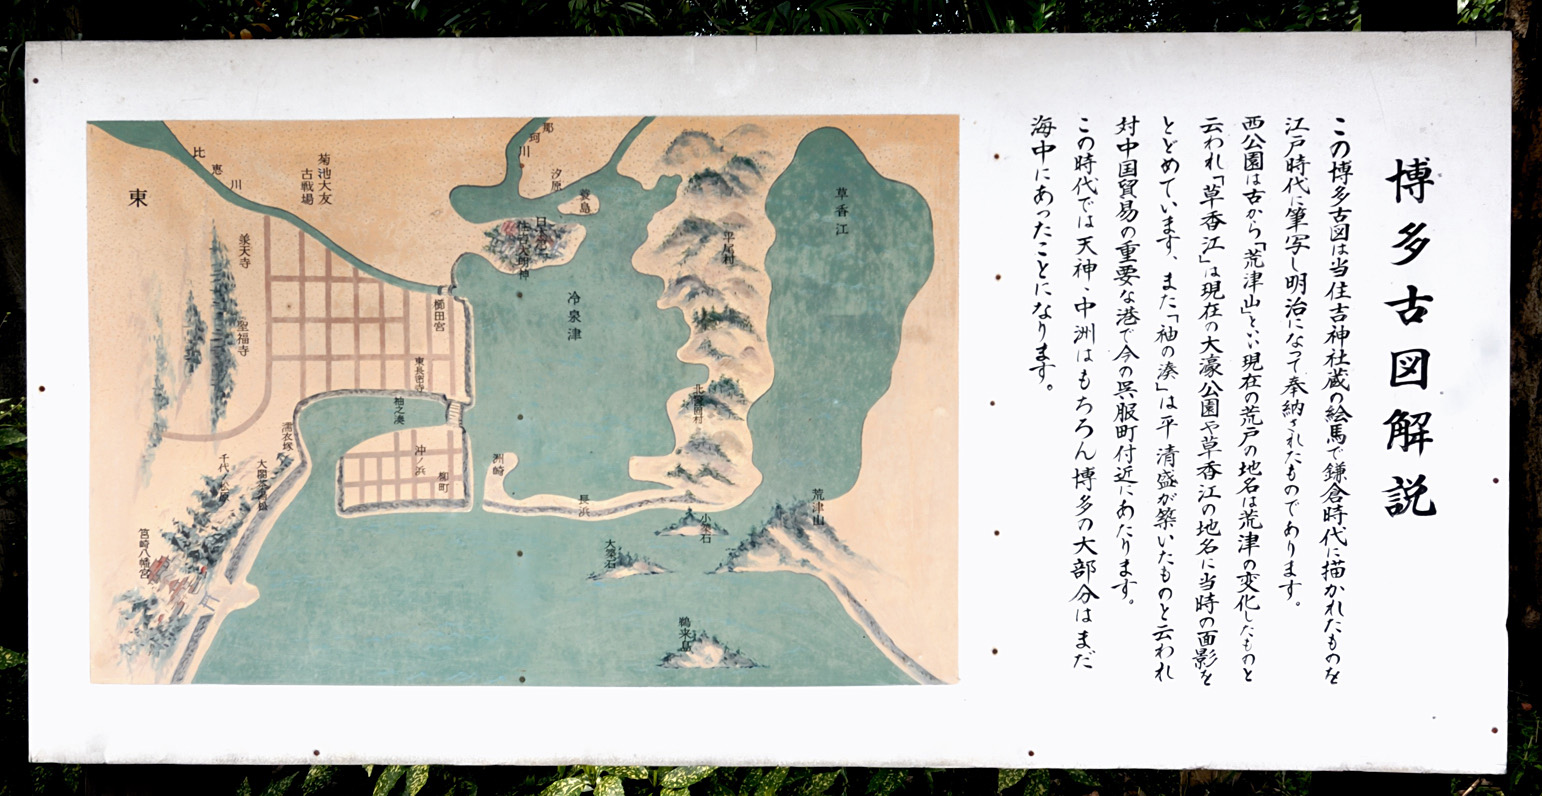 博多古図解説
この博多古図は当住吉神社蔵の絵馬で鎌倉時代に描かれたものを
江戸時代に筆写し明治になって奉納されたものであります。
西公園は古から「荒津山」といい現在の荒戸の地名は荒津の変化したものと
云われ「草香江」は現在の大濠公園や草香江の地名に当時の面影を
とどめています、また「袖の湊」は平清盛が築いたものと云われ
対中国貿易の重要な港で今の呉服町付近にあたります。
この時代では天神・中洲はもちろん博多の大部分はまだ
海中にあったことになります。
草香江
荒津山
平尾村
小築石
那珂川
汐原
簑島
住吉大明神
冷泉津
長浜
大築石
鵜来島
洲崎
櫛田宮
東長密寺
袖之湊
沖ノ浜
菊池大友
古戦場
比恵川
東
聖福寺
濡衣塚
筥崎八幡宮